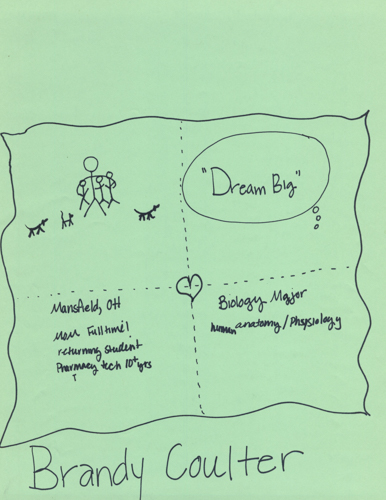 "Dream Big"
Mansfield, OH
Mom Fulltime!
returning student
Pharmacy tech 10+ yrs
Biology Major
human anatomy/Phsysiology
Brandy Coulter